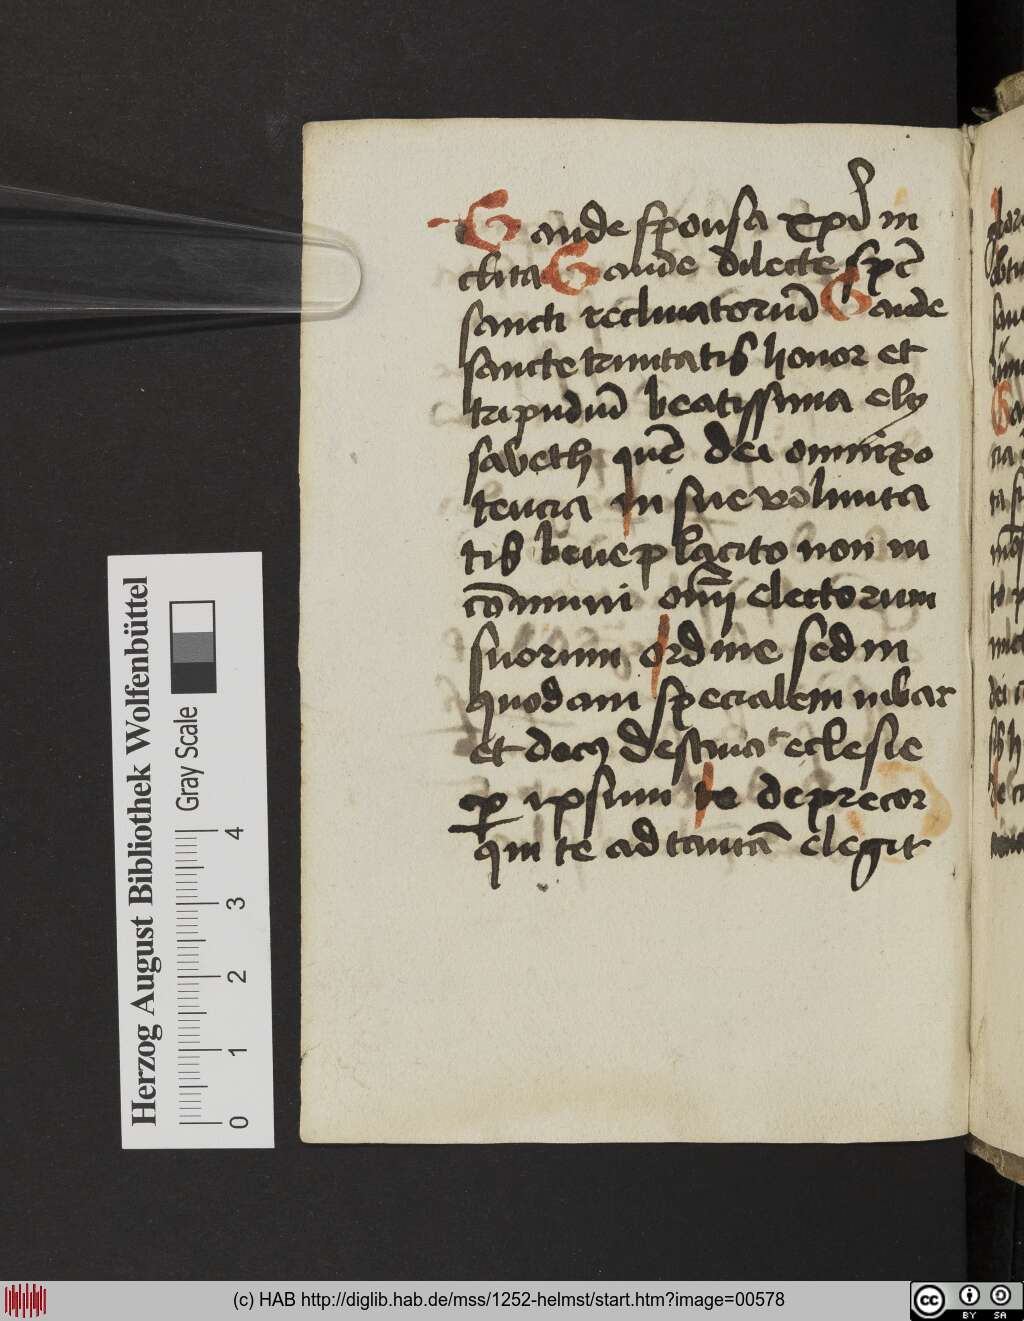 Gaude sponsa xpi in
clita Gaude dilecte spc̄
sancti reclinatoriū Gaude
sancte trinitatis honor et
tripudiū beatissima ely
sabeth quē dei omnipo
tencia in sue volunta
tis beneplacito non in
cōmuni om̄i electorum
suorum ordine sed in
quodam specialem iubar
et decꝯ destinat eclesie
ꝑ ipsum te deprecor
qui te ad tantā elegit
Herzog August Bibliothek Wolfenbüttel
Gray Scale
0 1 2 3 4
(c) HAB http://diglib.hab.de/mss/1252-helmst/start.htm?image=00578
cc BY SA